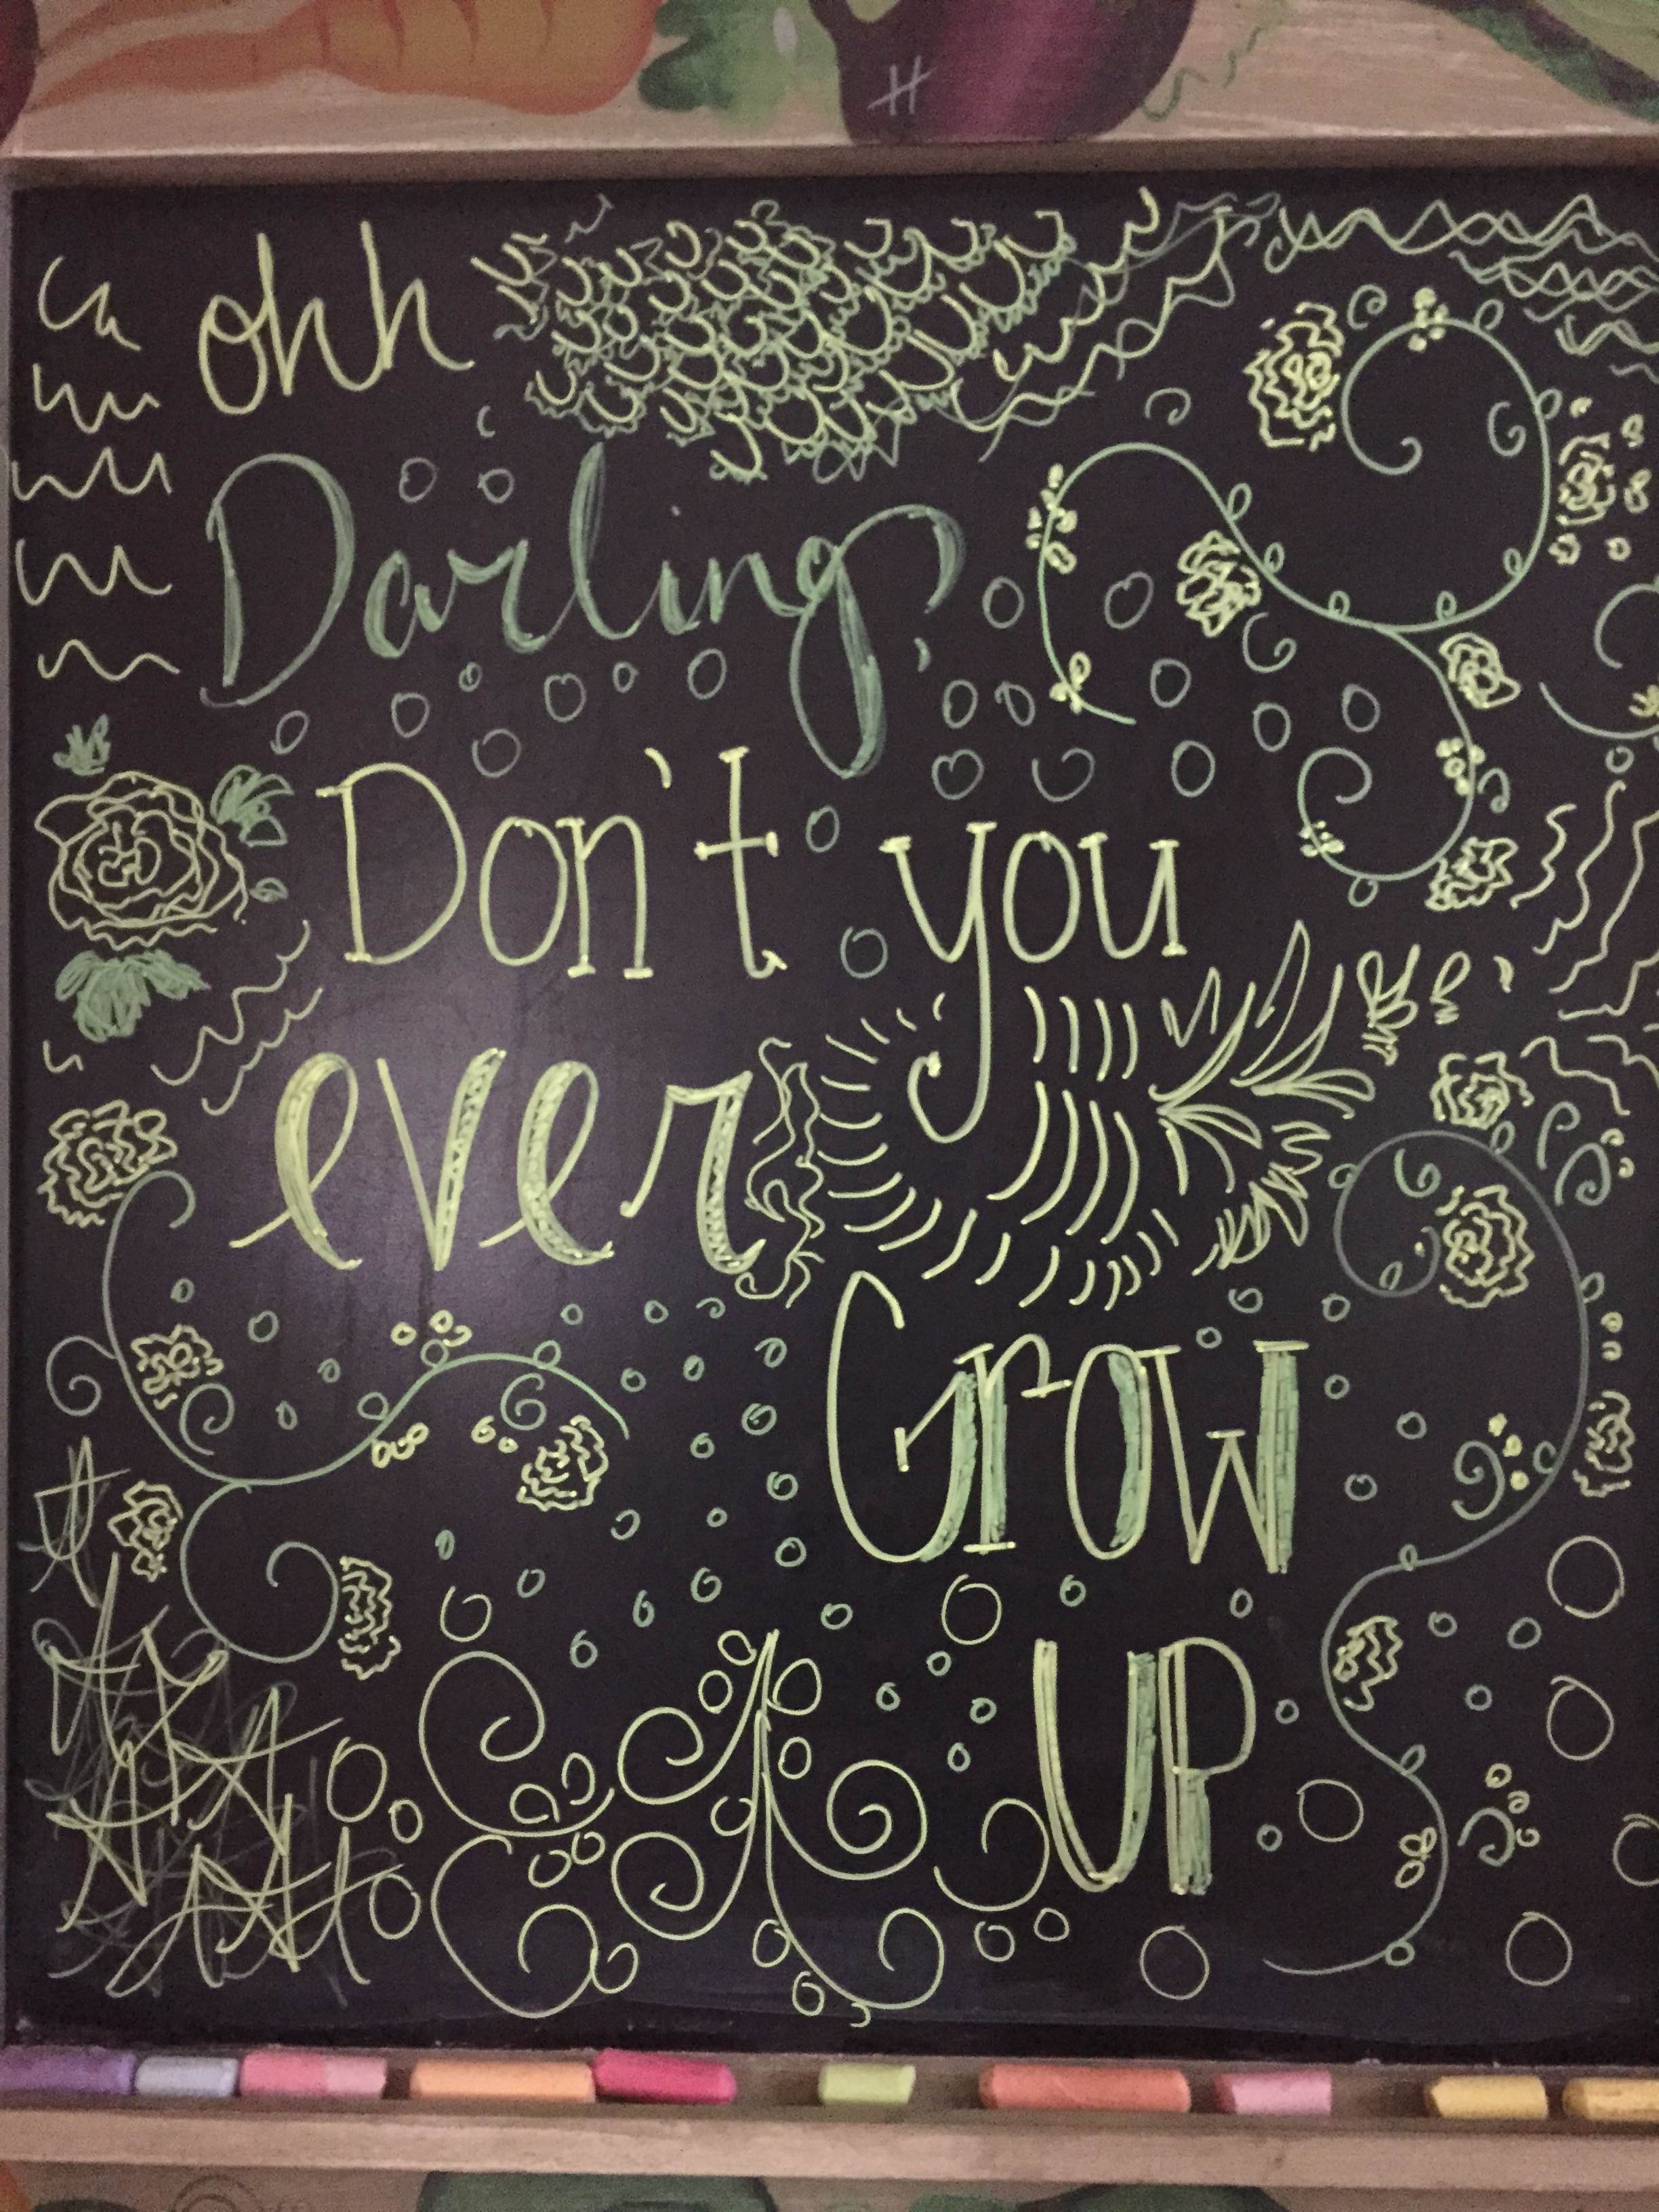 ohh
Darling,
Don't you
ever
Grow
UP